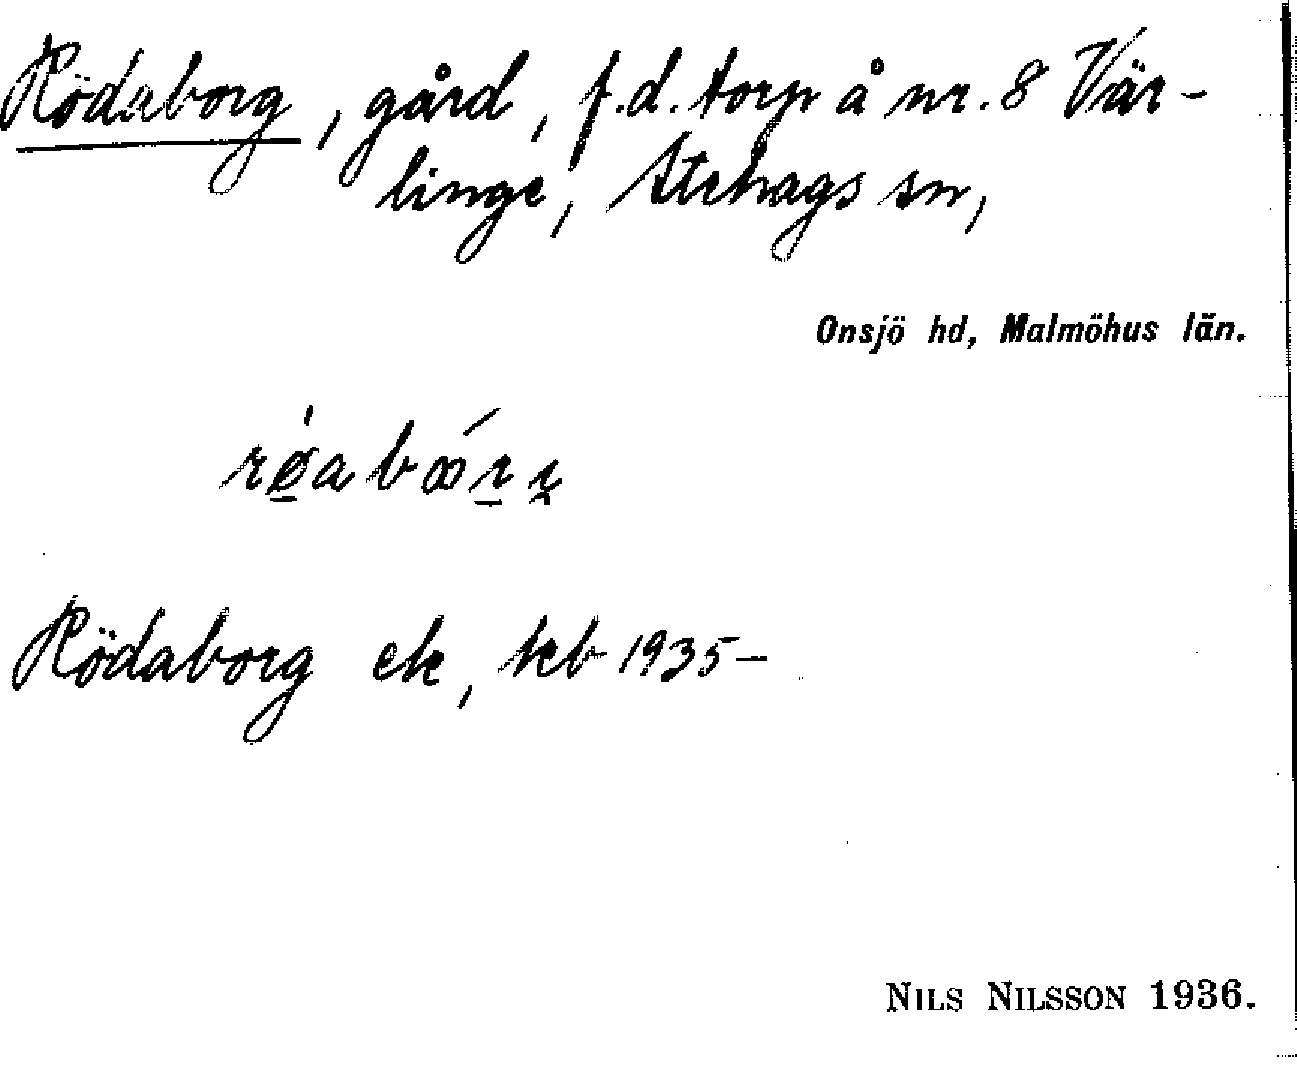 Rödaborg, gård, f.d. torp å nr. 8 Vär-
linge, Stehags sn,
Onsjö hd, Malmöhus län.
Rödaborg ek, kb 1935-
NILS NILSSON 1936.